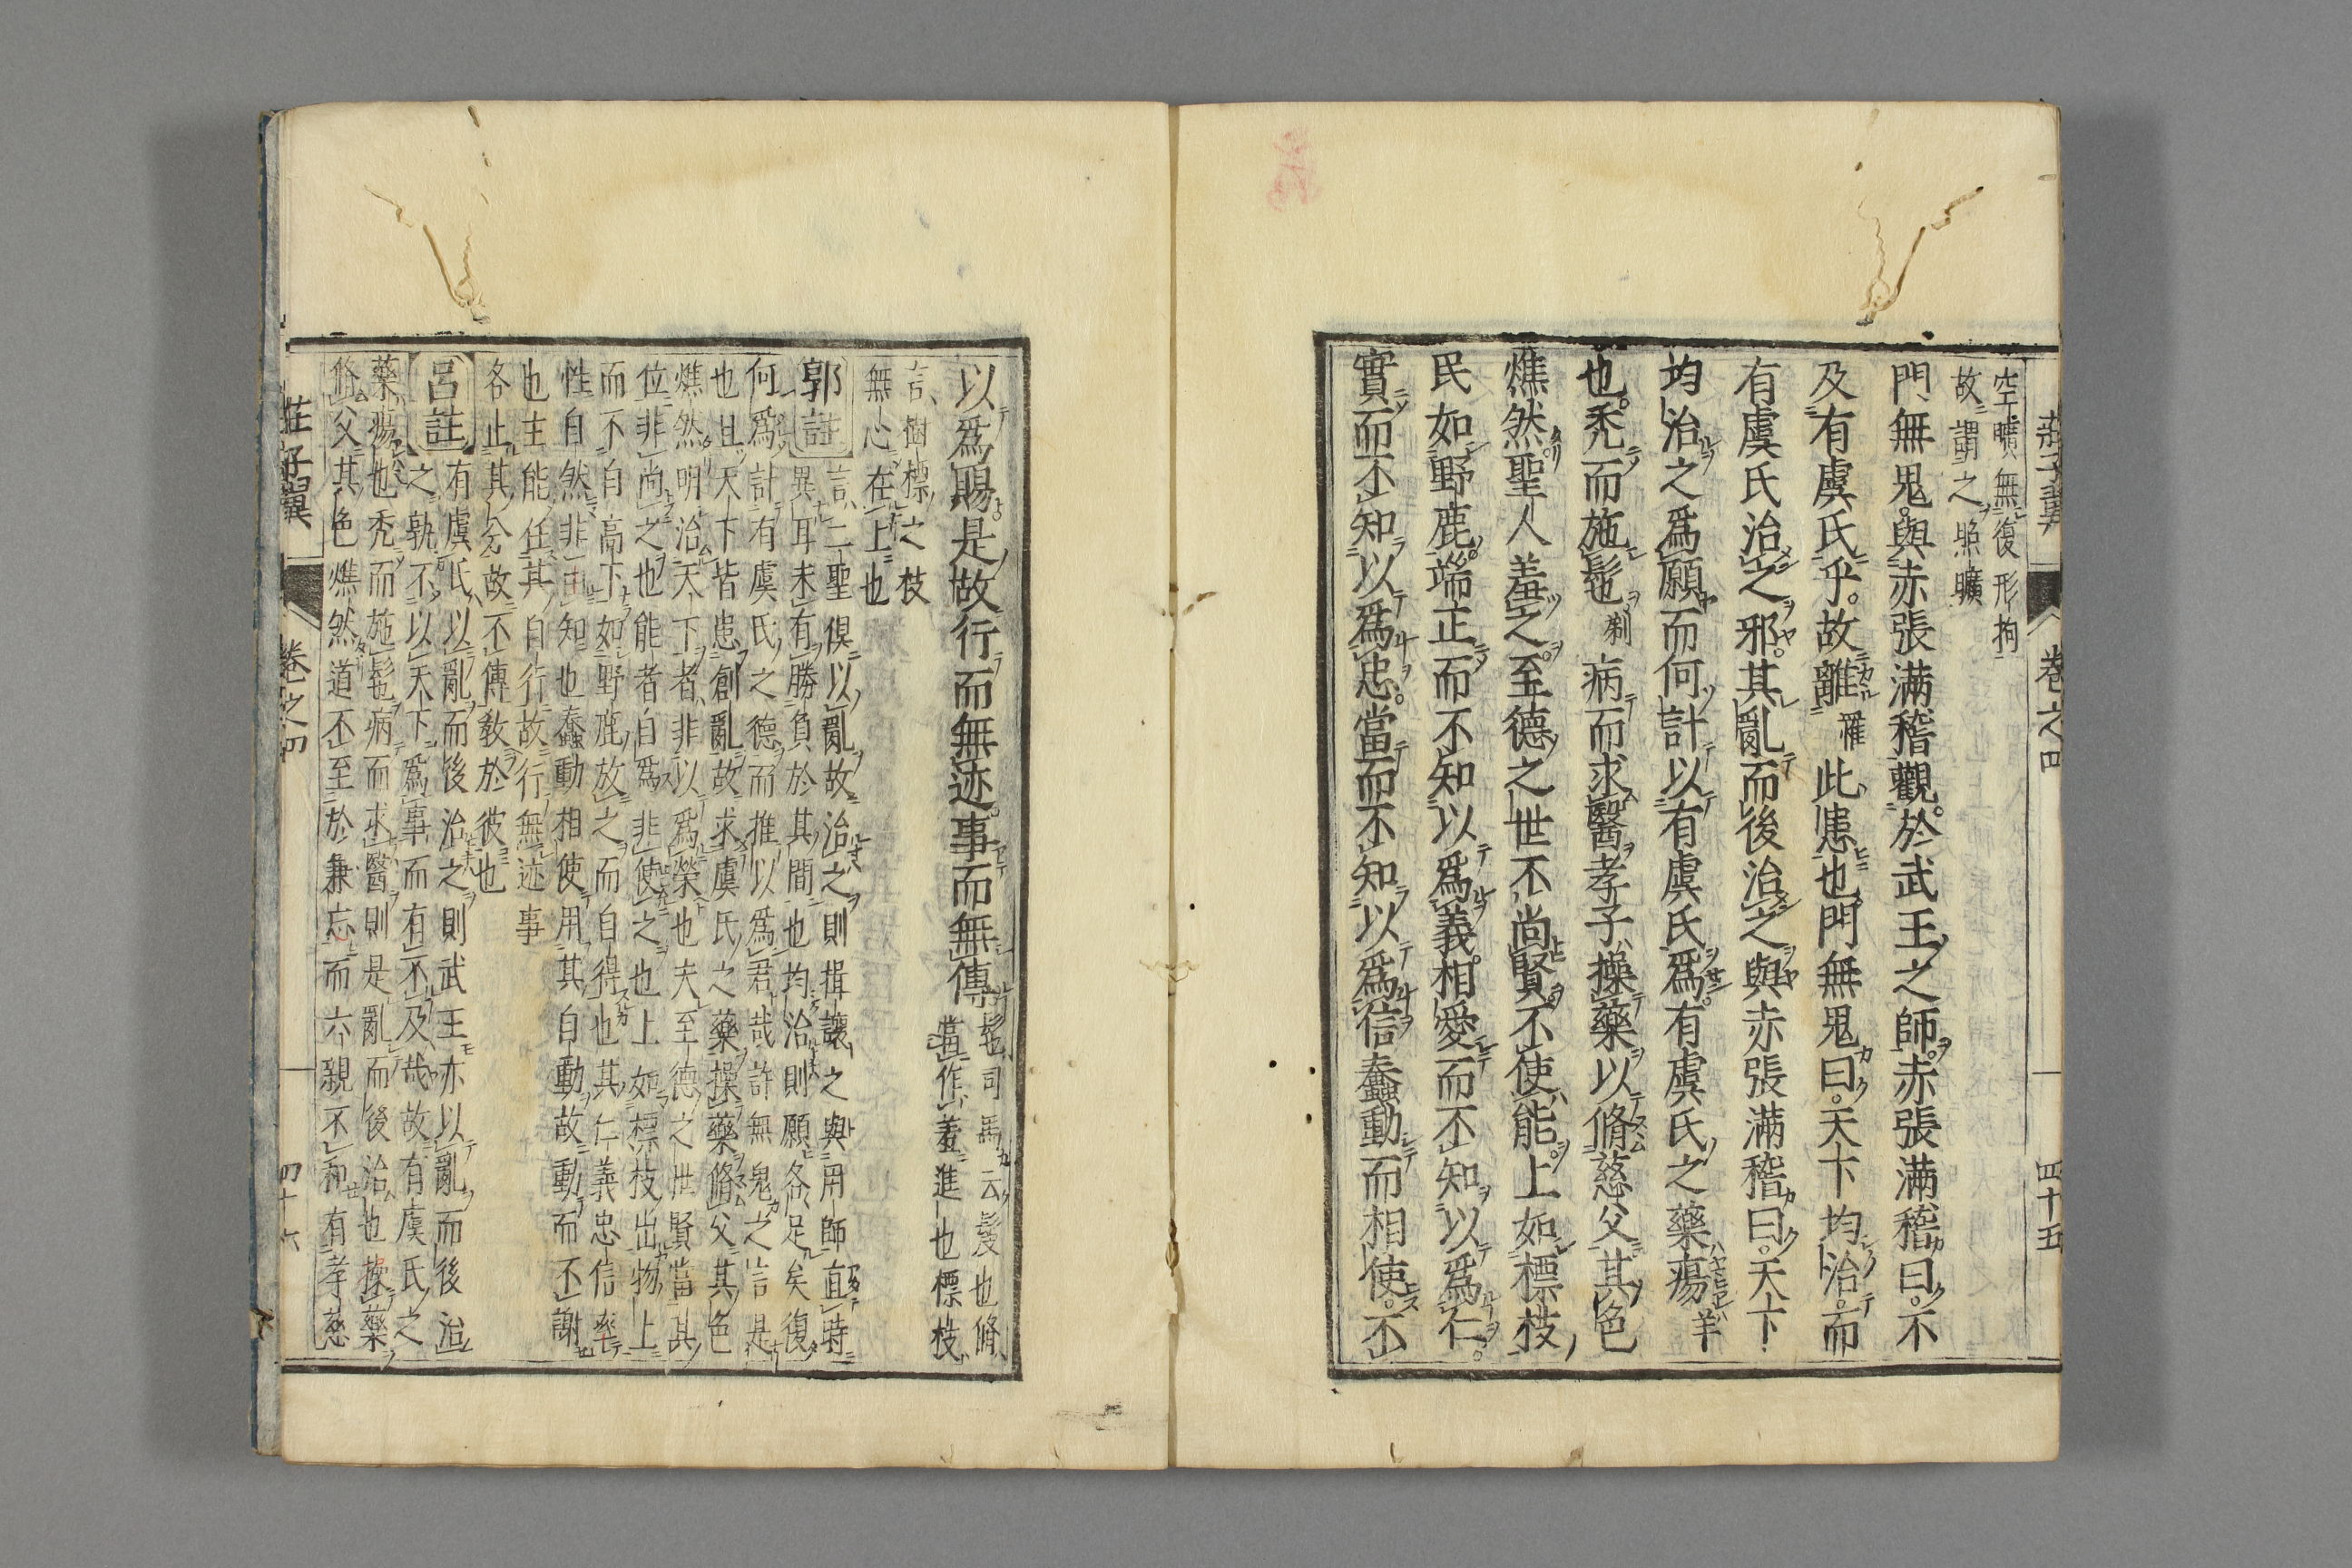 莊子翼 卷之四 四十五
空曠無復形拘
故謂之照曠
門無鬼與赤張滿稽觀於武王之師赤張滿稽曰不
及有虞氏乎故離罹此患也門無鬼曰天下均治而
有虞氏治之邪其亂而後治之與赤張滿稽曰天下
均治之爲願而何計以有虞氏爲有虞氏之藥瘍羊
也禿而施髢剃病而求醫孝子操藥以脩慈父其色
燋然聖人羞之至德之世不尚賢不使能上如標枝
民如野鹿端正而不知以爲義相愛而不知以爲仁
實而不知以爲忠當而不知以爲信蠢動而相使不
以爲賜是故行而無迹事而無傳髢司馬云髲也脩
當作羞進也標枝
言樹標之枝
無心在上也
郭註 言二聖俱以亂故治之則揖讓之與用師直時
異耳未有勝負於其間也均治則願各足矣復
何爲計有虞氏之德而推以爲君哉許無鬼之言是
也且天下皆患創亂故求虞氏之藥操藥脩父其色
燋然明治天下者非以爲榮也夫至德之世賢當其
位非尚之也能者自爲非使之也上如標枝出物上
而不自高下如野鹿放之而自得也其仁義忠信率
性自然非由知也蠢動相使用其自動故動而不謝
也主能任其自行故行無迹事
各止其分故不傳敎於彼也
呂註 有虞氏以亂而後治之則武王亦以亂而後治
之孰不以天下爲事而有不及哉故有虞氏之
藥瘍也禿而施髢病而求醫則是亂而後治也操藥
脩父其色燋然道不至於兼忘而六親不和有孝慈
莊子翼 卷之四 四十六